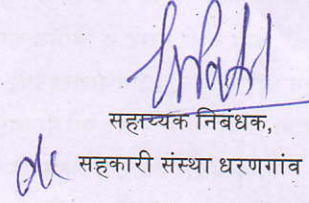 सहाय्यक निबंधक,
सहकारी संस्था धरणगांव